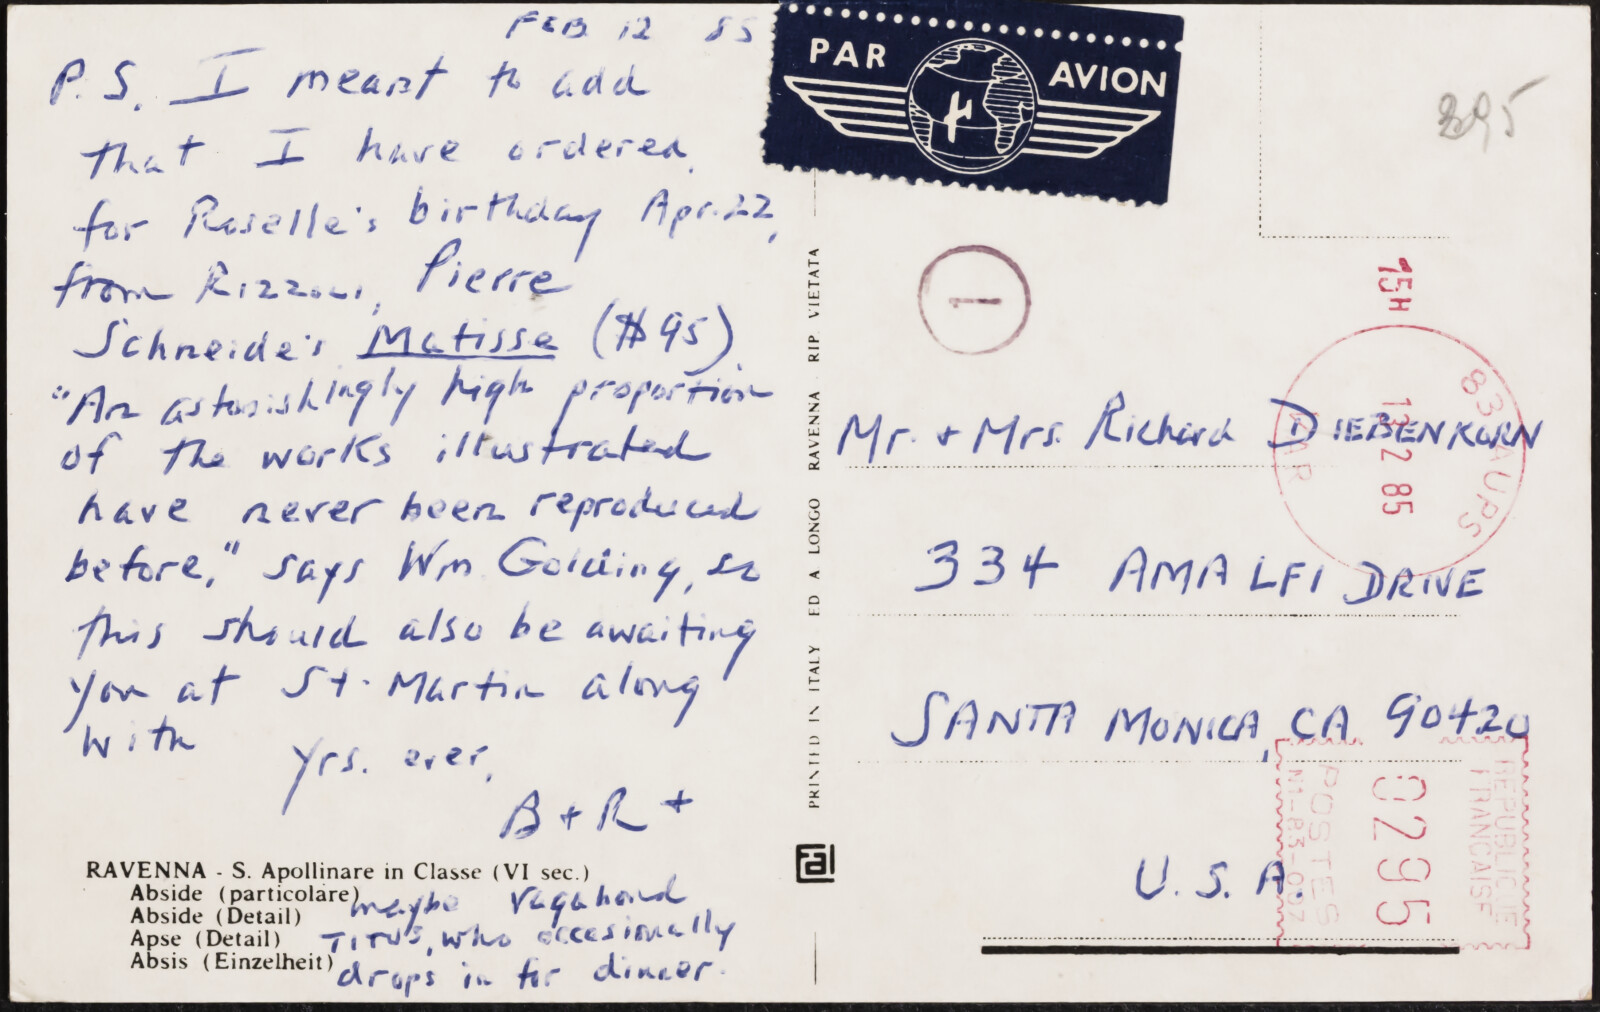 FEB 12 85
P.S. I meant to add
that I have ordered,
for Roselle's birthday Apr. 22,
from Rizzoli, Pierre
Schneider's Matisse ($95).
"An astonishingly high proportion
of the works illustrated
have never been reproduced
before," says Wm. Golding, so
this should also be awaiting
you at St. Martin along
with
yrs. ever,
B + R +
maybe vagabond
TITUS, who occasionally
drops in for dinner.
RAVENNA - S. Apollinare in Classe (VI sec.)
Abside (particolare)
Abside (Detail)
Apse (Detail)
Absis (Einzelheit)
PRINTED IN ITALY ED A LONGO RAVENNA . RIP. VIETATA
al
PAR AVION
395
1
15H
83 VAR AUPS
13 2 85
Mr. + Mrs. Richard DIEBENKORN
334 AMALFI DRIVE
SANTA MONICA, CA 90420
U.S.A.
REPUBLIQUE
FRANCAISE
0295
POSTES